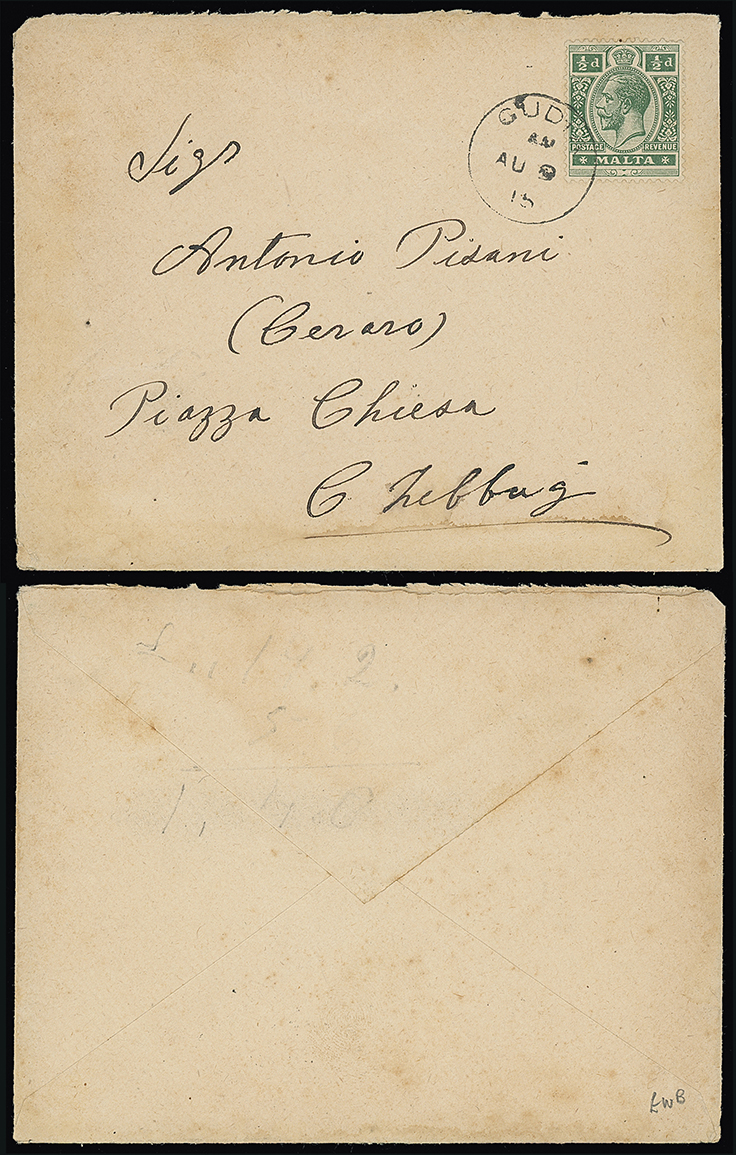 ½d ½d
POSTAGE REVENUE
MALTA
GUDI
AU 9
15
Sigr
Antonio Pisani
(Ceraro)
Piazza Chiesa
C Zebbug
EWB